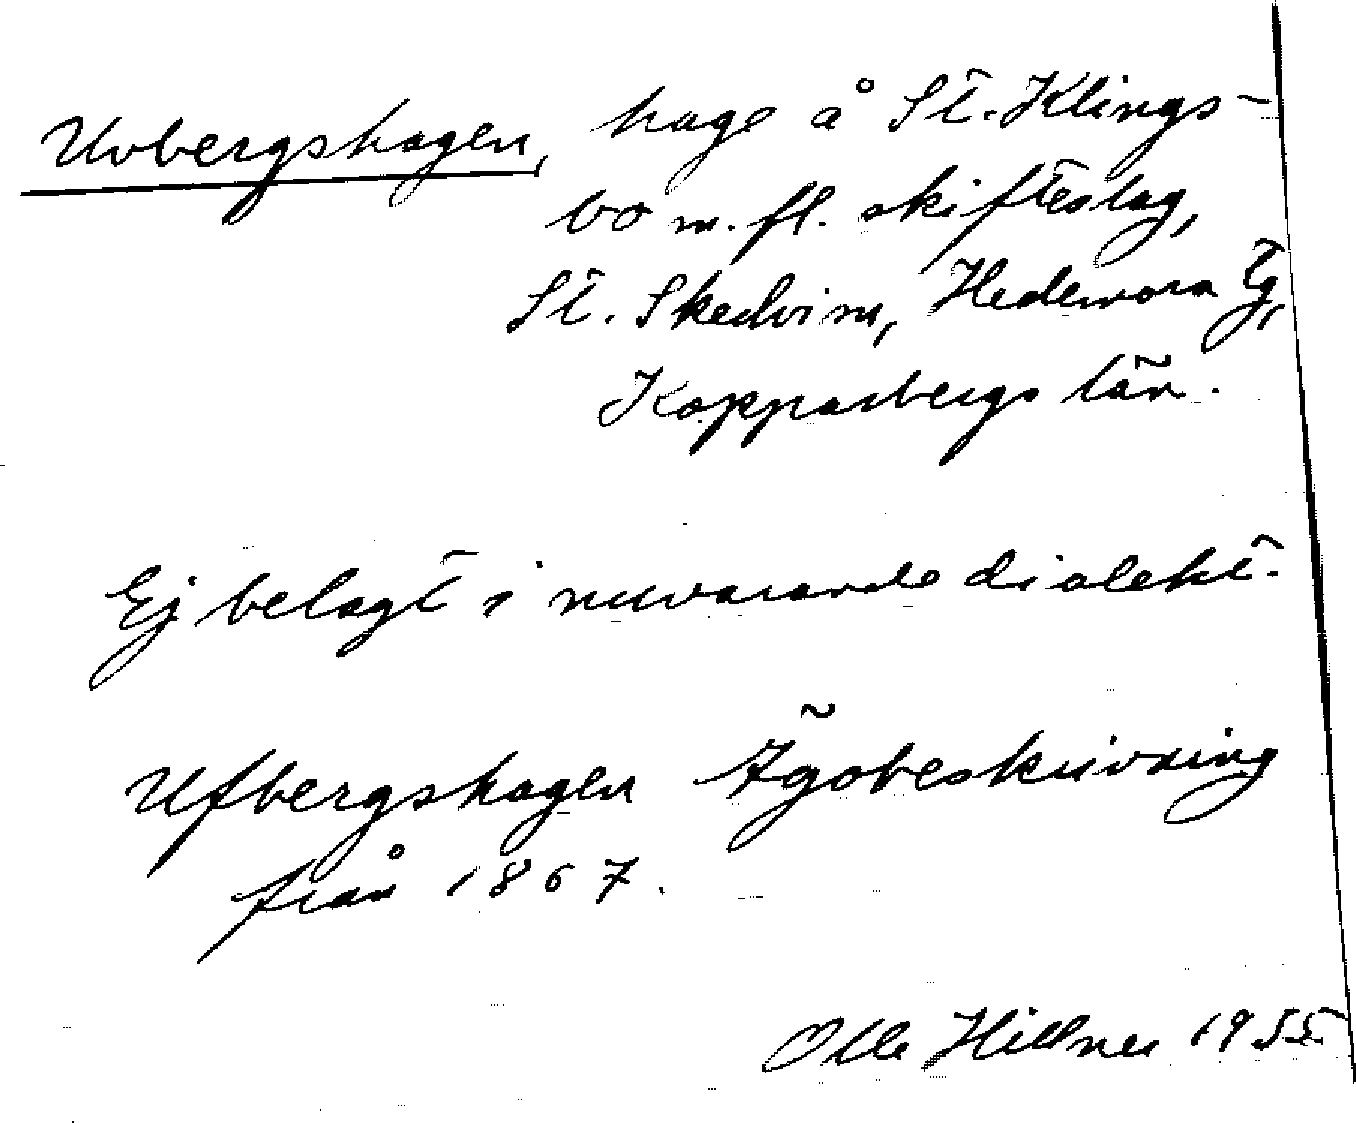 Uvbergshagen, hage å St. Klings-
bo m. fl. skifteslag,
St. Skedvi sn, Hedemora tg,
Kopparbergs län.
Ej belagt i nuvarande dialekt.
Ufbergshagen Ägobeskrivning
från 1867.
Olle Hillner 1955